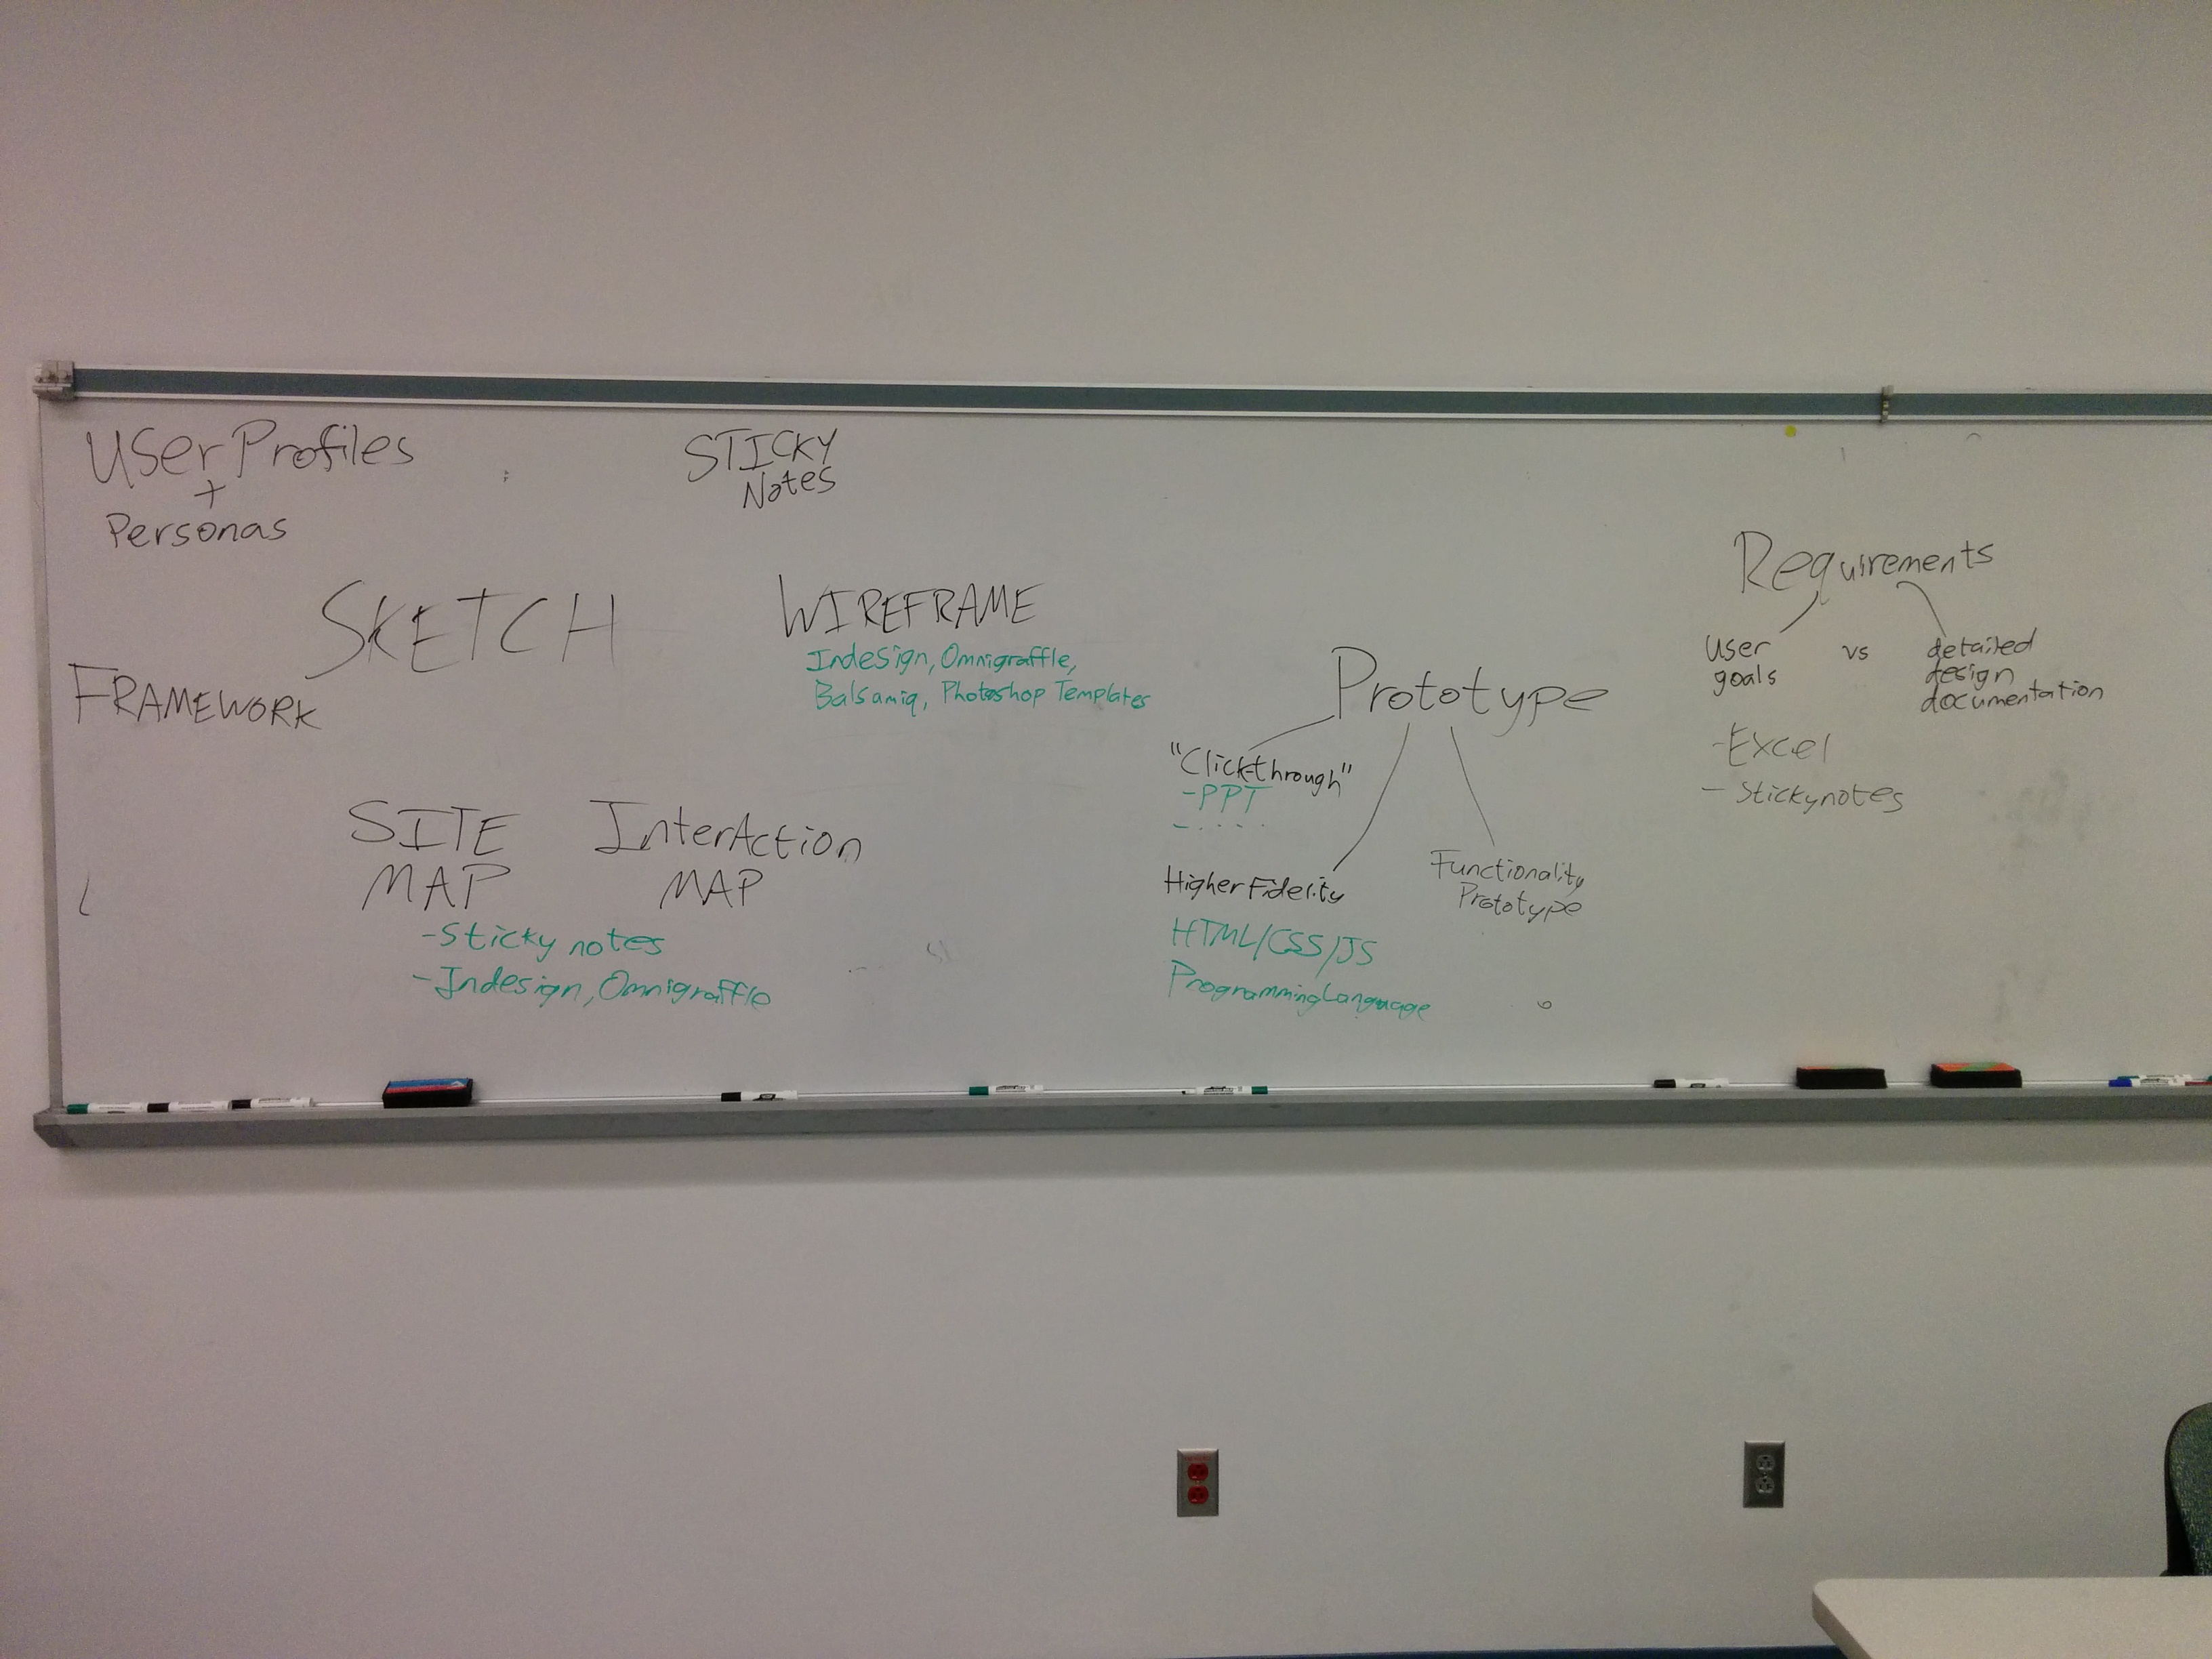 User Profiles
+
Personas
STICKY
Notes
SKETCH
FRAMEWORK
WIREFRAME
Indesign, Omnigraffle,
Balsamiq, Photoshop Templates
SITE
MAP
InterAction
MAP
-Sticky notes
-Indesign, Omnigraffle
Prototype
"Clickthrough"
-PPT
- . . . .
Higher Fidelity
HTML/CSS/JS
Programming Language
Functionality
Prototype
Requirements
user
goals
vs
detailed
design
documentation
-Excel
- Stickynotes